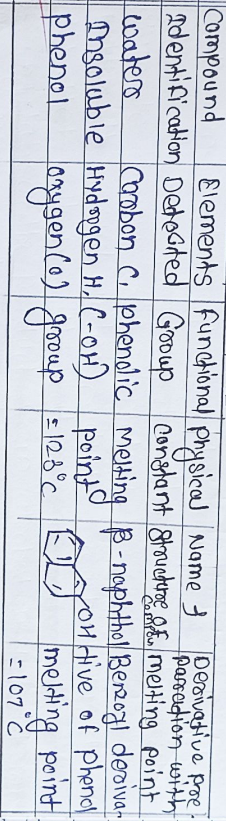 Compound
Identification
Elements
Detected
Functional
Group
Physical
Constant
Name &
Structure of
Compoun
Derivative pre
paration with
melting point
Water
Insoluble
phenol
Carbon C,
Hydrogen H,
oxygen(O)
phenolic
(-OH)
group
melting
point
=128°C
β-naphthol
OH
Benzoyl deriva
tive of phenol
melting point
=107°C